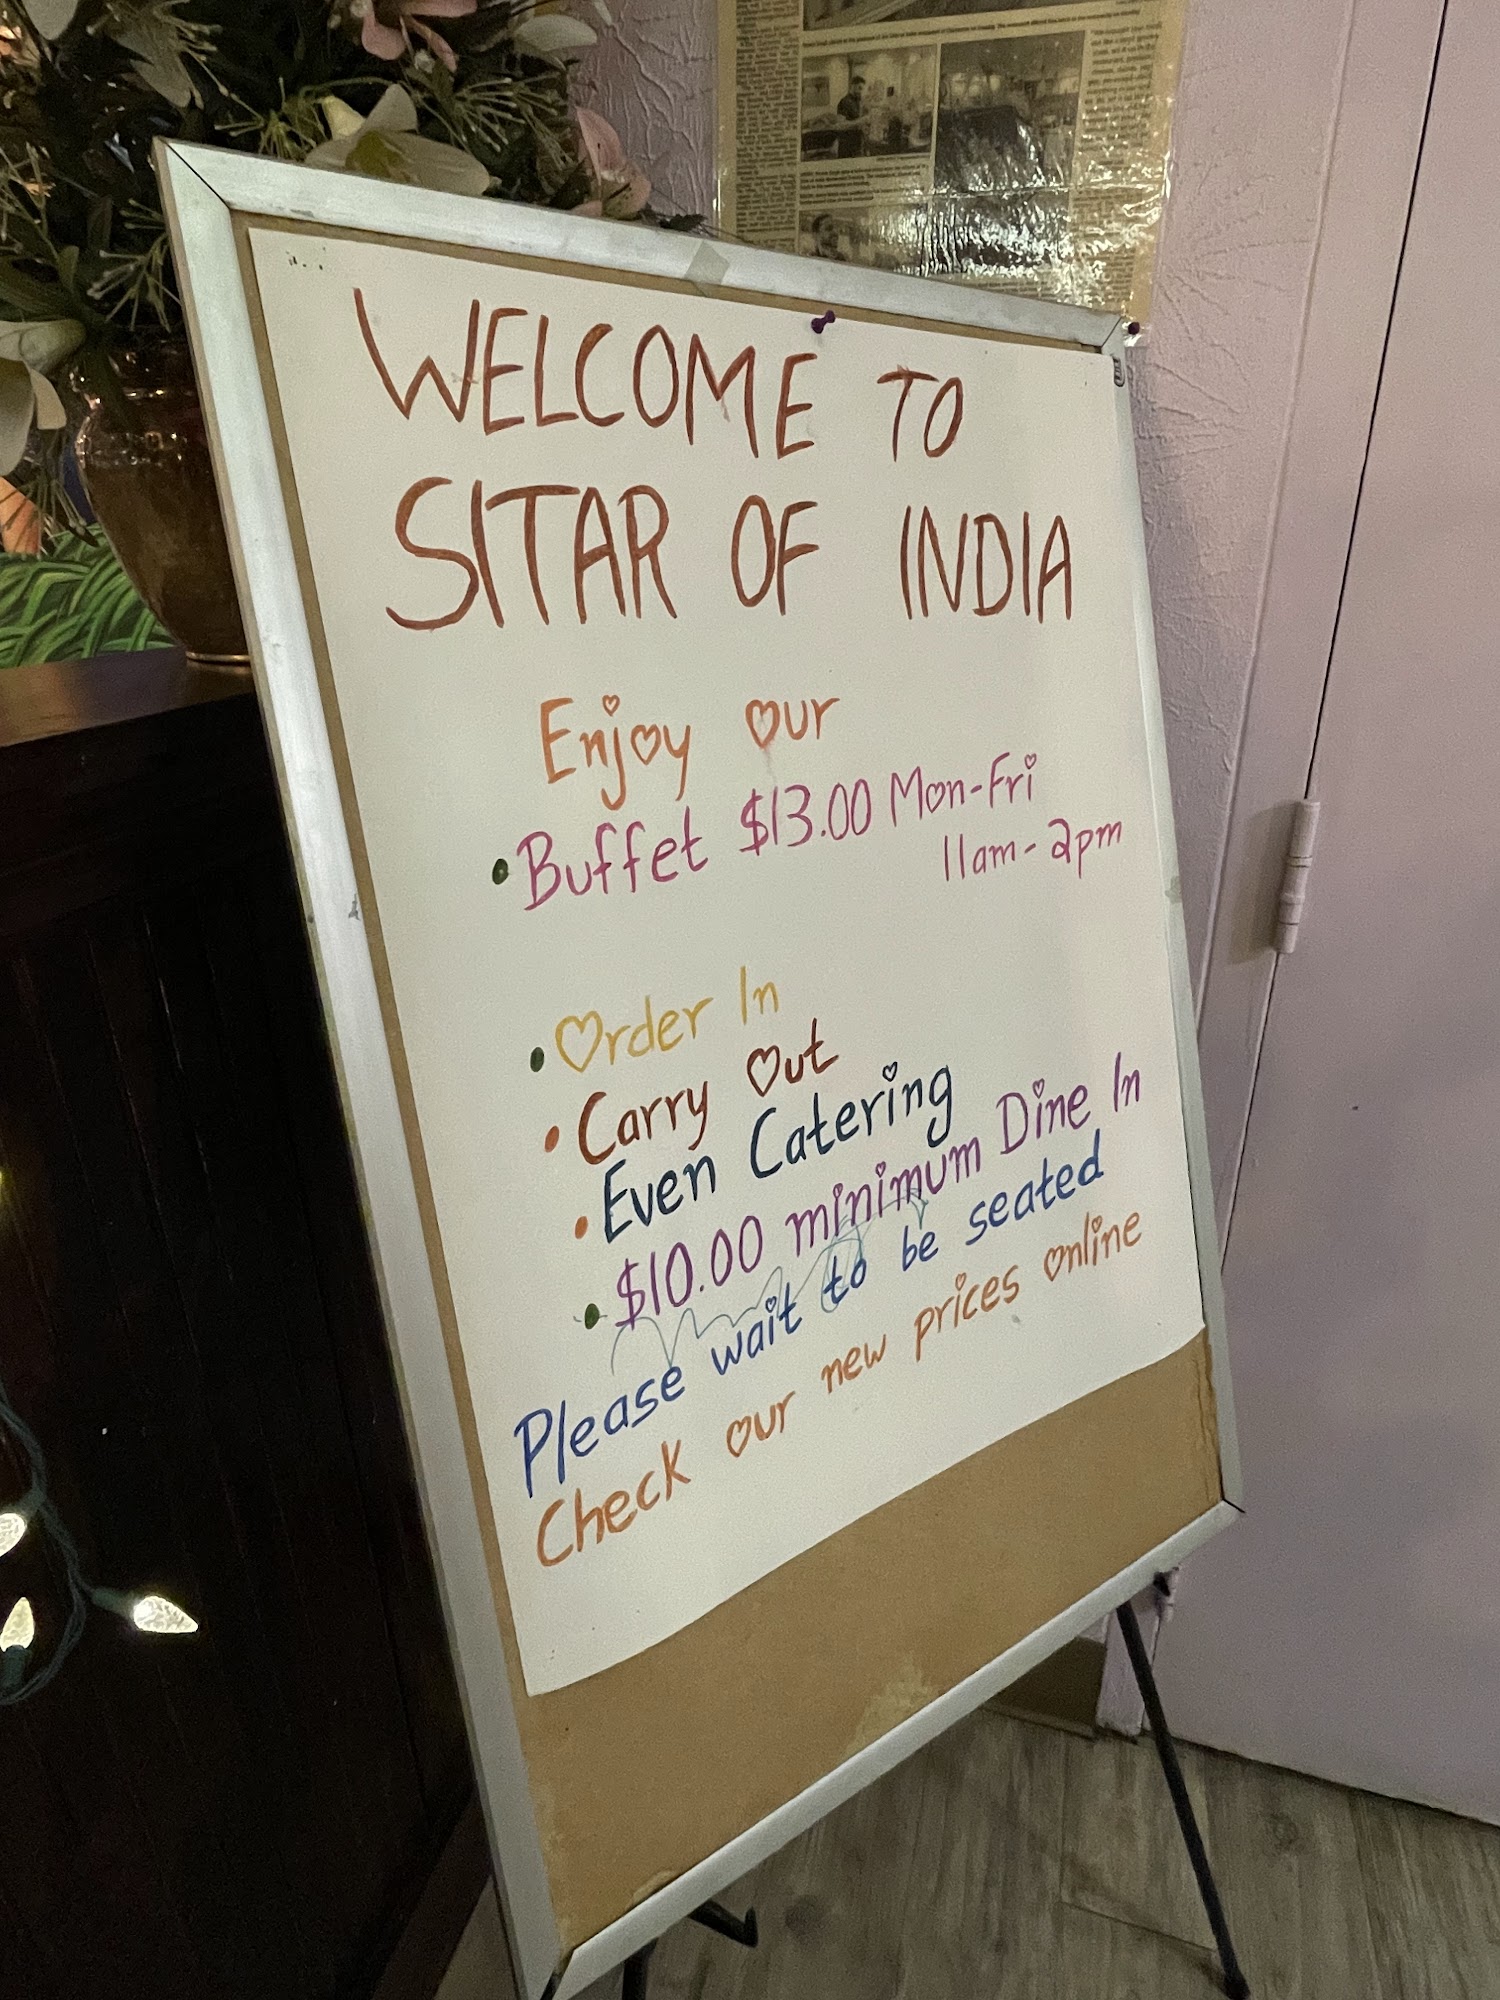 WELCOME TO
SITAR OF INDIA
Enjoy our
• Buffet $13.00 Mon-Fri
11am-2pm
• Order In
• Carry Out
• Even Catering
• $10.00 minimum Dine In
Please wait to be seated
Check our new prices online